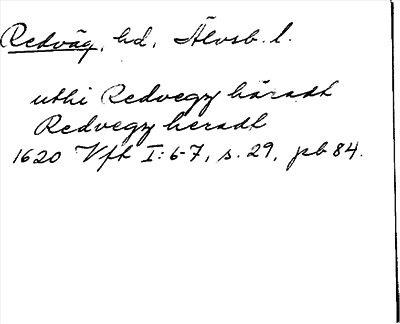 Redväg, hd, Älvsb. l.
uthi Redvegz häradt
Redvegz heradt
1620 Vft I: 6-7, s. 29, pb 84.